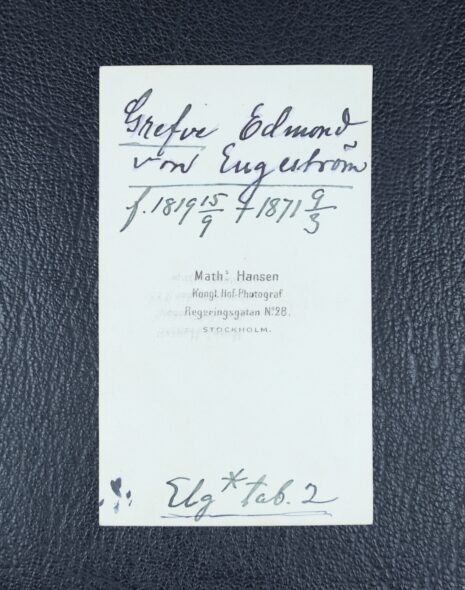 Grefve Edmond
von Engeström
f. 1819 15/9 † 1871 9/3
Mathˢ Hansen
Kongl. Hof-Photograf
Regeringsgatan Nº 28.
STOCKHOLM.
Elg * tab. 2